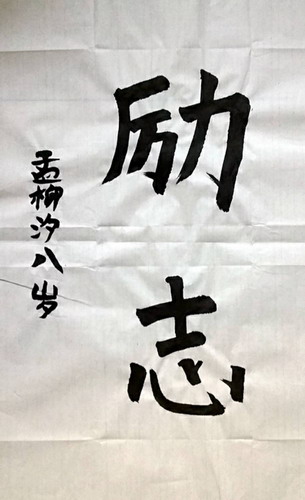 励志
孟柳汐八岁